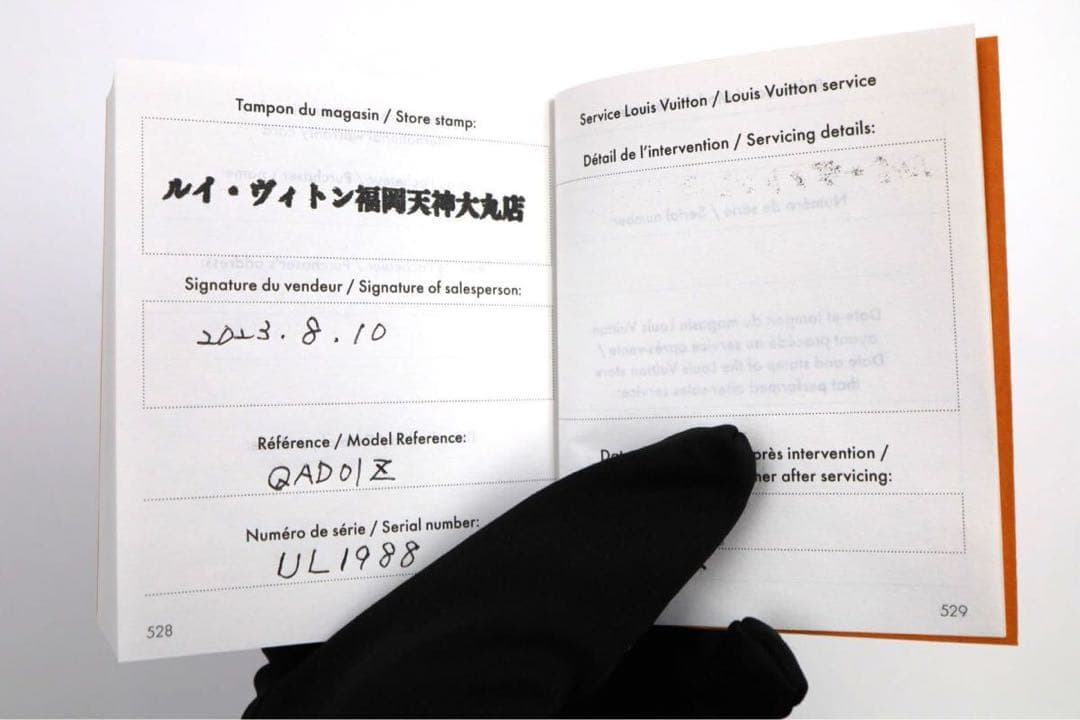 Tampon du magasin / Store stamp:
ルイ・ヴィトン福岡天神大丸店
Signature du vendeur / Signature of salesperson:
2023.8.10
Référence / Model Reference:
QAD01Z
Numéro de série / Serial number:
UL1988
528
Service Louis Vuitton / Louis Vuitton service
Détail de l'intervention / Servicing details:
intervention /
after servicing:
529